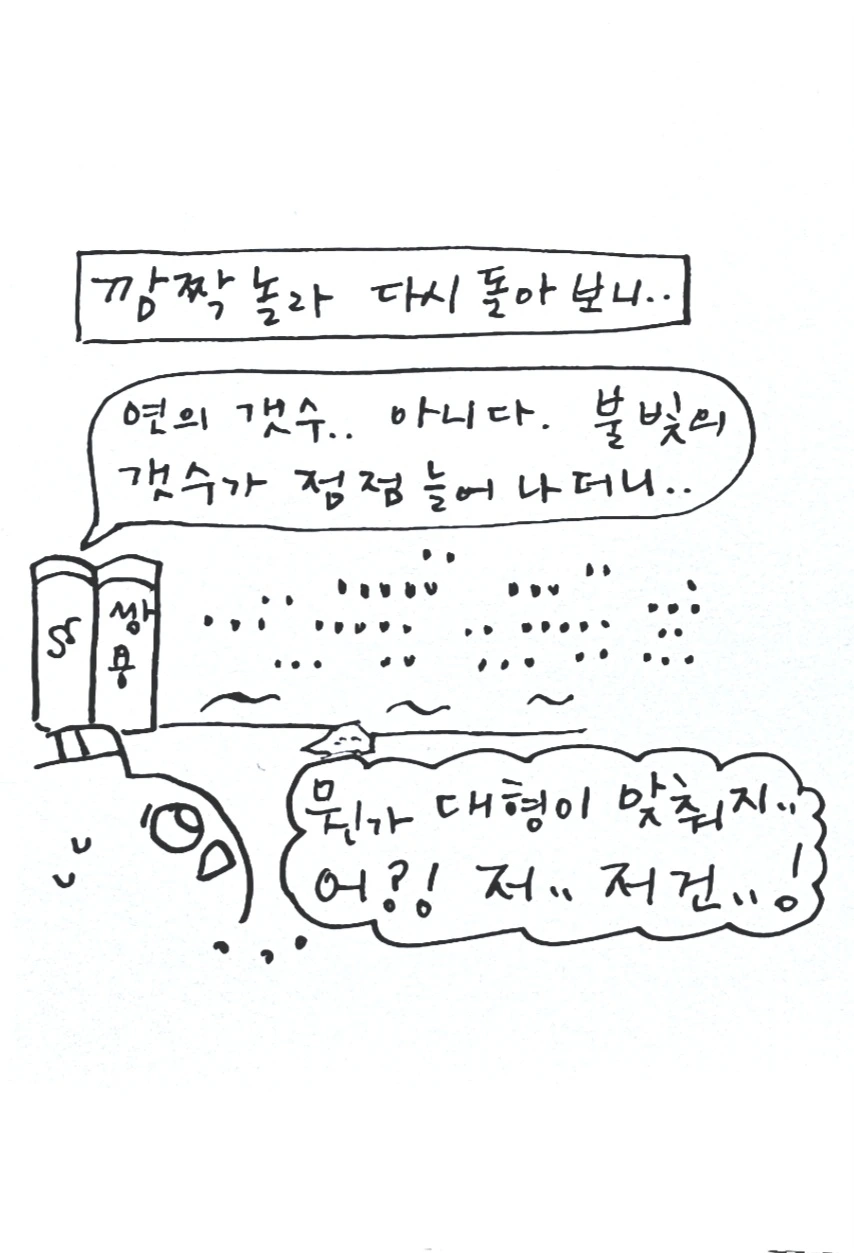 깜짝 놀라 다시 돌아 보니..
연의 갯수.. 아니다. 불빛의
갯수가 점점 늘어 나더니..
쌍
용
뭔가 대형이 맞춰지..
어?! 저.. 저건..!